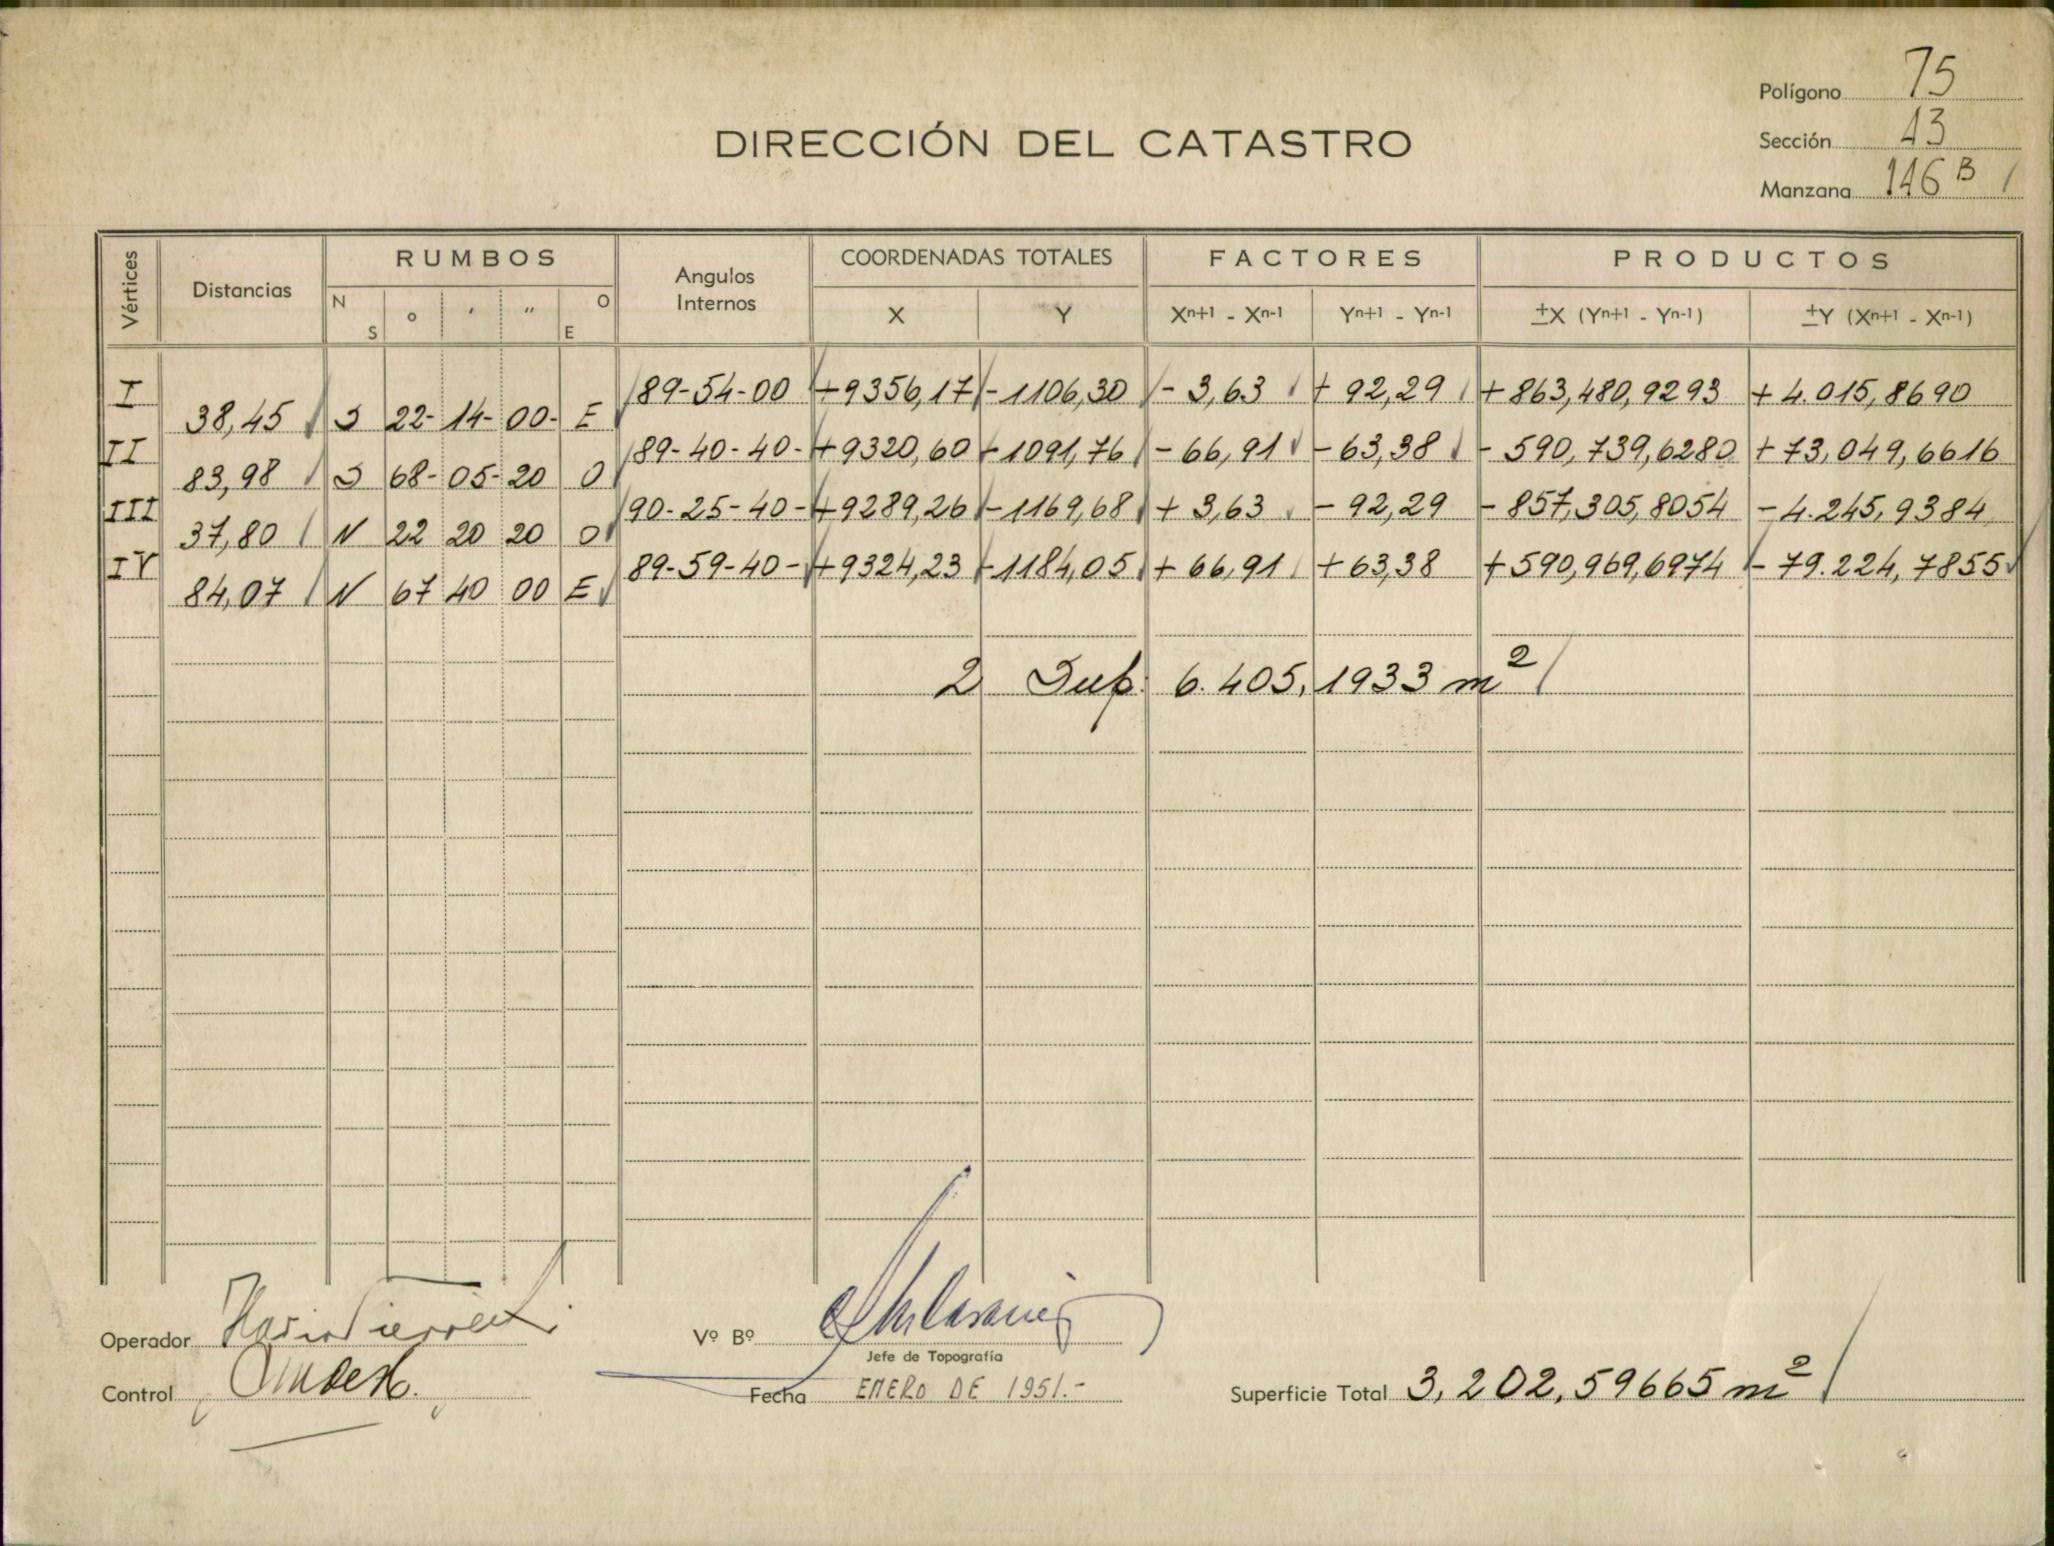 Polígono 75
DIRECCIÓN DEL CATASTRO
Sección 13
Manzana 146 B
Vértices Distancias RUMBOS Angulos Internos COORDENADAS TOTALES FACTORES PRODUCTOS
N S o ' " O E X Y Xn+1 - Xn-1 Yn+1 - Yn-1 ±X (Yn+1 - Yn-1) ±Y (Xn+1 - Xn-1)
I 89-54-00 +9356,17 -1106,30 - 3,63 + 92,29 +863,480,9293 +4.015,8690
38,45 S 22- 14- 00- E
II 89-40-40- +9320,60 -1091,76 - 66,91 - 63,38 - 590,739,6280 +73,049,6616
83,98 S 68- 05- 20 O
III 90-25-40- +9289,26 -1169,68 + 3,63 - 92,29 - 857,305,8054 - 4.245,9384
37,80 N 22 20 20 O
IV 89-59-40- +9324,23 -1184,05 + 66,91 + 63,38 +590,969,6974 - 79.224,7855
84,07 N 67 40 00 E
2 Sup. 6.405,1933 m2
Operador
Vº Bº
Jefe de Topografía
Control
Fecha ENERO DE 1951.-
Superficie Total 3,202,59665 m2